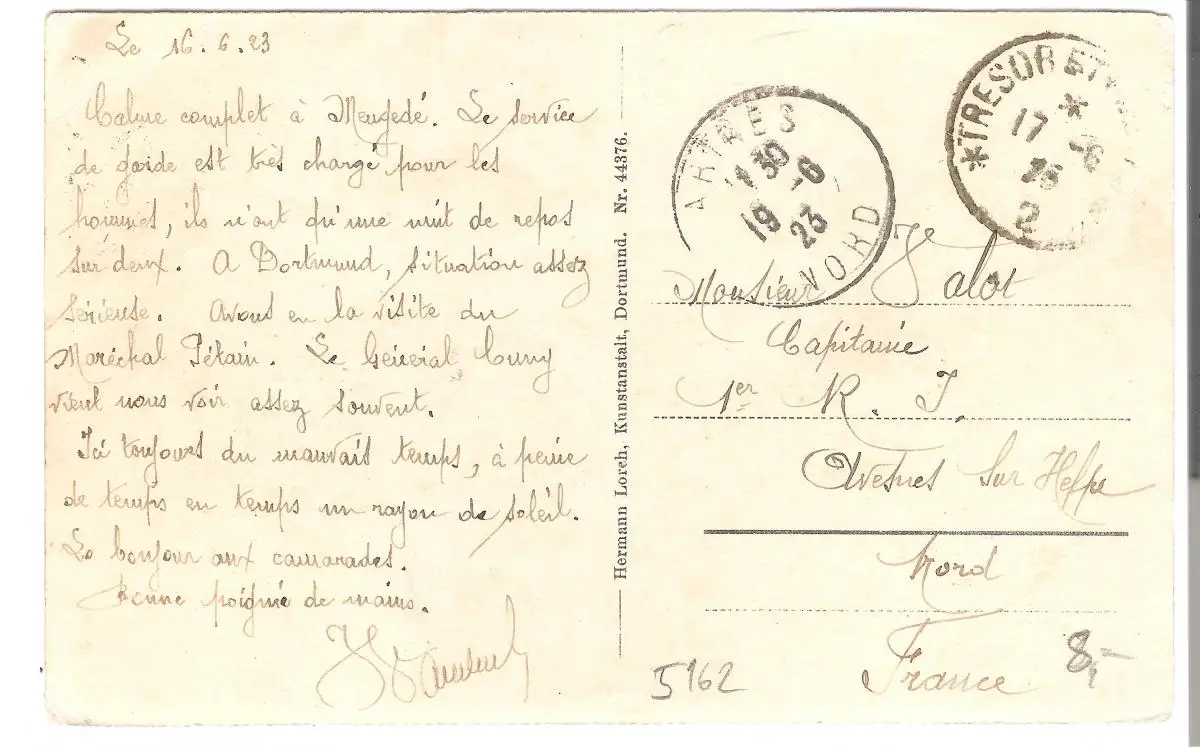 Le 16.6.23
Calme complet à Mengedé. Le service
de garde est très chargé pour les
hommes, ils n'ont qu'une nuit de repos
sur deux. A Dortmund, situation assez
sérieuse. Avons eu la visite du
Maréchal Pétain. Le Général Cuny
vient nous voir assez souvent.
Ici toujours du mauvais temps, à peine
de temps en temps un rayon de soleil.
Le bonjour aux camarades.
Bonne poignié de mains.
Hermann Lorch, Kunstanstalt, Dortmund. Nr. 44376.
ARTRES
30
19 6
23
NORD
*TRESOR ET
*
17 -6
23
2
Monsieur Jalot
Capitaine
1er R. I.
Avesnes sur Helpe
Nord
France
5162
8,-